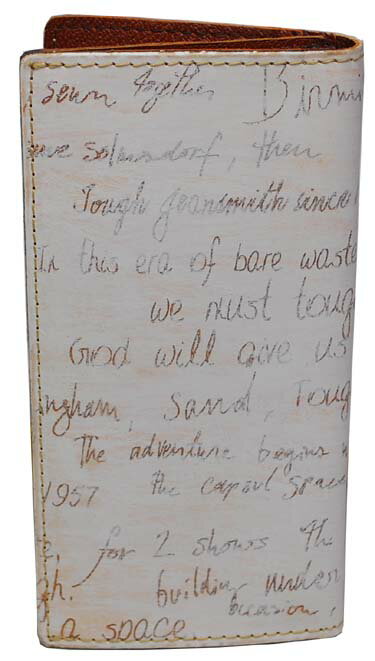 sewn together Birmi
ve solmsdorf, then
Tough jeansmith since
In this era of bare waste
we must toug
God will give us
ingham, Sand, Toug
The adventure begins
1957 the capsul space
for 2 shows the
gh. building under
occasion,
a space